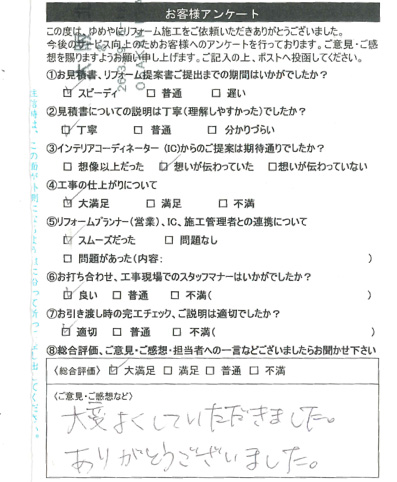 お客様アンケート
この度は、ゆめやにリフォーム施工をご依頼いただきありがとうございました。
今後のサービス向上のためお客様へのアンケートを行っております。ご意見・ご感
想を賜りますようお願い申し上げます。ご記入の上、ポストへ投函してください。
①お見積書、リフォーム提案書ご提出までの期間はいかがでしたか?
☑ スピーディ □ 普通 □ 遅い
②見積書についての説明は丁寧(理解しやすかった)でしたか?
☑ 丁寧 □ 普通 □ 分かりづらい
③インテリアコーディネーター (IC)からのご提案は期待通りでしたか?
□ 想像以上だった ☑ 想いが伝わっていた □想いが伝わっていない
④工事の仕上がりについて
☑ 大満足 □ 満足 □ 不満
⑤リフォームプランナー(営業)、IC、施工管理者との連携について
☑ スムーズだった □ 問題なし
□ 問題があった(内容: )
⑥お打ち合わせ、工事現場でのスタッフマナーはいかがでしたか?
☑ 良い □ 普通 □ 不満( )
⑦お引き渡し時の完工チェック、ご説明は適切でしたか?
☑ 適切 □ 普通 □ 不満( )
⑧総合評価、ご意見・ご感想・担当者への一言などございましたらお聞かせ下さい
〈総合評価〉 ☑ 大満足 □ 満足 □ 普通 □ 不満
〈ご意見・ご感想など〉
大変よくしていただきました。
ありがとうございました。